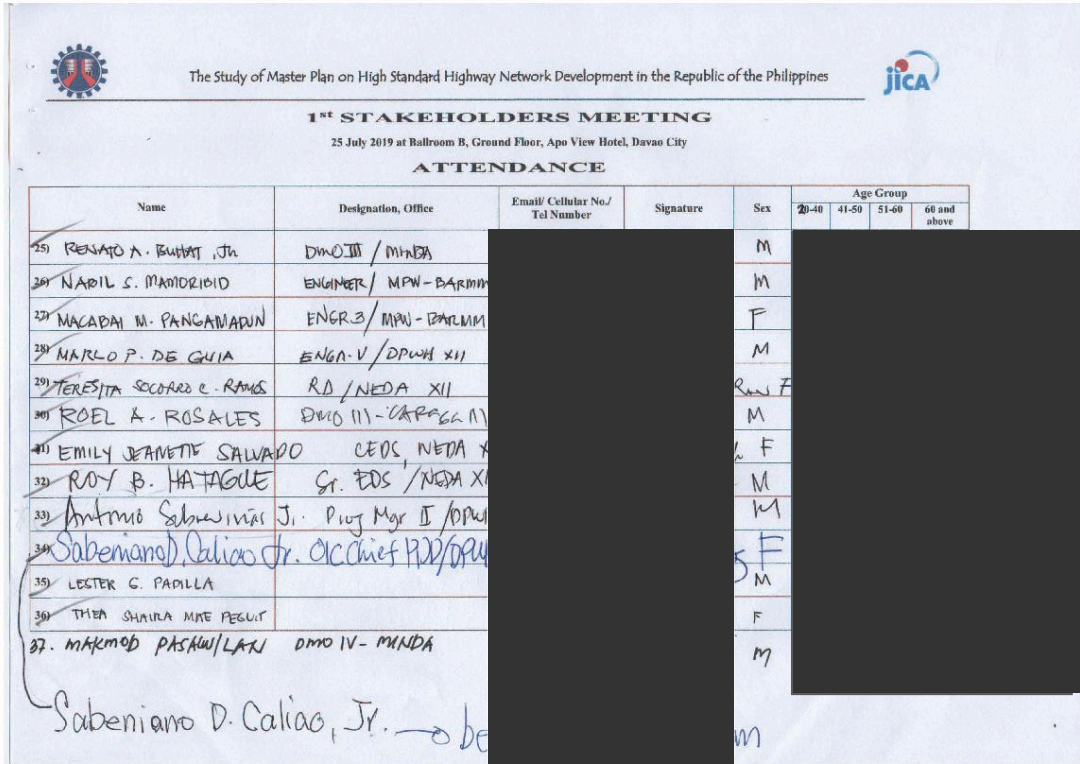 The Study of Master Plan on High Standard Highway Network Development in the Republic of the Philippines
jICA
1st STAKEHOLDERS MEETING
25 July 2019 at Ballroom B, Ground Floor, Apo View Hotel, Davao City
ATTENDANCE
Name Designation, Office Email/ Cellular No./ Tel Number Signature Sex Age Group
20-40 41-50 51-60 60 and above
25) RENATO A. BUHAT, Jr. DMO III / MINDA M
26) NABIL S. MAMORIBID ENGINEER/ MPW-BARMM M
27) MACABAI M. PANGAMADUN ENGR 3/MPW-BARMM F
28) MARLO P. DE GUIA ENGR. V/DPWH XII M
29) TERESITA SOCORRO C. RAMOS RD/NEDA XII F
30) ROEL A. ROSALES DMO III - M
31) EMILY JEANETTE SALVADO CEDS, NEDA X F
32) ROY B. HATAGUE Sr. EDS /NEDA XI M
33) Antonio Jr. Proj Mgr II /DPW M
34) Sabeniano D. Caliao Jr. OIC Chief PDD/DPW F
35) LESTER G. PADILLA M
36) THEA SHAIRA MAE PEGUIT F
37. MAKMOD DMO IV- MINDA M
Sabeniano D. Caliao, Jr. be